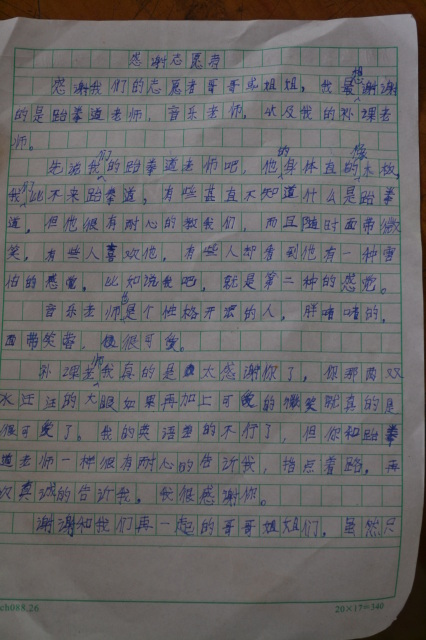 感谢志愿者
感谢我们的志愿者哥哥或姐姐，我最想谢谢
的是跆拳道老师，音乐老师，以及我的补课老
师。
先说我们的跆拳道老师吧，他的身体直的像木板，
我们从不来跆拳道，有些甚至不知道什么是跆拳
道，但他很有耐心的教我们，而且随时面带微
笑，有些人喜欢他，有些人却看到他有一种害
怕的感觉。比如说我吧，就是第二种的感觉。
音乐老师也是个性格开朗的人，胖嘟嘟的，
面带笑容，很可爱。
补课老师我真的是太感谢你了，你那两双
水汪汪的大眼如果再加上可爱的微笑就真的是
很可爱了。我的英语差的不行了，但你和跆拳
道老师一样很有耐心的告诉我，指点着路，再
次真诚的告诉我，我很感谢你。
谢谢和我们再一起的哥哥姐姐们，虽然只
cb088.26
20×17=340